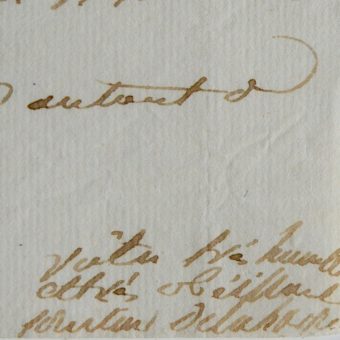 autant d
votre très humble
et très obéissant
serviteur Delaborde